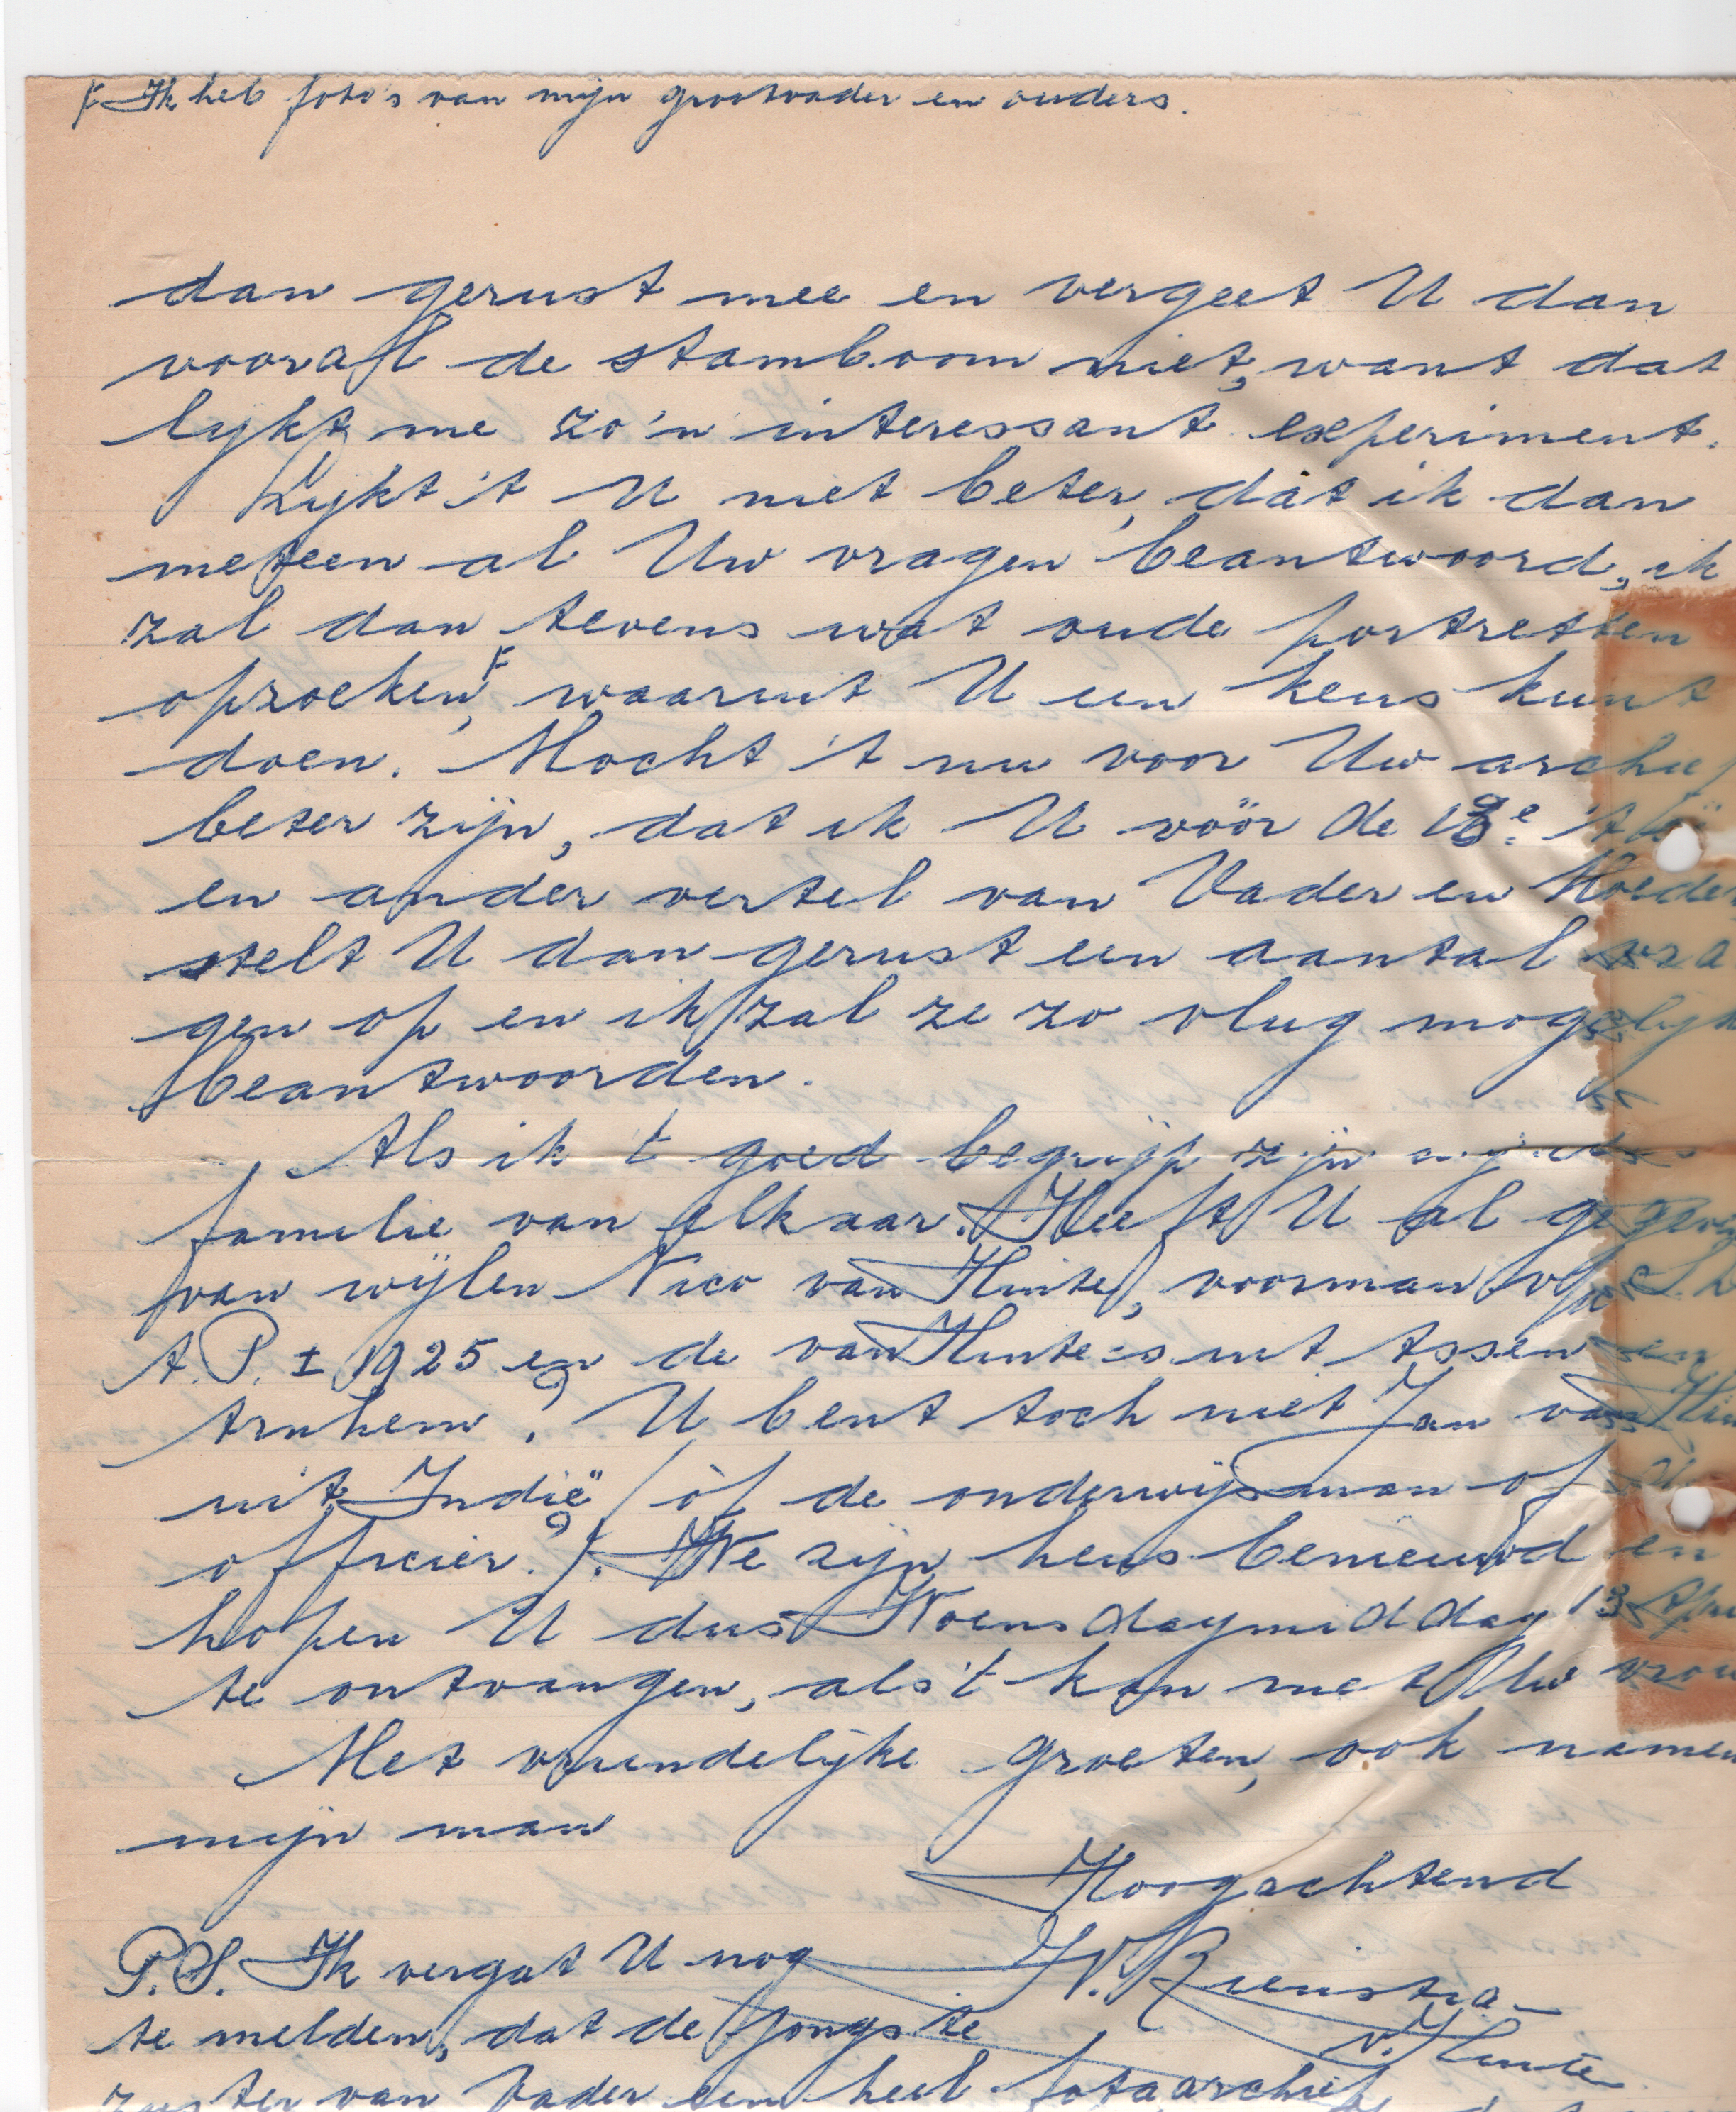 F Ik heb foto's van mijn grootvader en ouders.
dan gerust mee en vergeet U dan
vooral de stamboom niet, want dat
lijkt me zo'n interessant experiment.
Lijkt 't U niet beter, dat ik dan
meteen al Uw vragen beantwoord, ik
zal dan tevens wat oude portretten
opzoeken F, waaruit U een keus kunt
doen. Mocht 't nu voor Uw archief
beter zijn, dat ik U vóór de 13e 't
en ander vertel van Vader en Moeder
stelt U dan gerust een aantal vra
gen op en ik zal ze zo vlug mogelijk
beantwoorden.
Als ik 't goed begrijp zijn
familie van elkaar. Heeft U al
van wijlen Nico van Hinte, voorman
A.P. ± 1925 en de van Hinte's uit Assen en
Arnhem? U bent toch niet Jan van Hin
uit Indië (òf de onderwijsman of
officier?). We zijn heus benieuwd en
hopen U dus Woensdagmiddag 13 Apri
te ontvangen, als 't kan met Uw vrou
Met vriendelijke groeten, ook namen
mijn man
Hoogachtend
P.S. Ik vergat U nog
v. Hinte
te melden, dat de jongste
zuster van Vader een heel fotoarchief